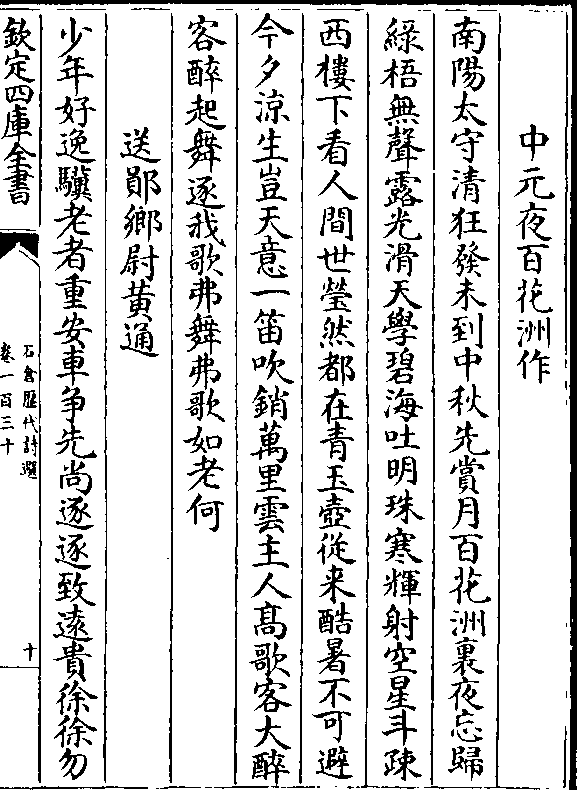 中元夜百花洲作
南陽太守清狂發未到中秋先賞月百花洲裏夜忘歸
綠梧無聲露光滑天學碧海吐明珠寒輝射空星斗疎
西樓下看人間世瑩然都在青玉壺從来酷暑不可避
今夕涼生豈天意一笛吹銷萬里雲主人髙歌客大醉
客醉起舞逐我歌弗舞弗歌如老何
送鄖鄉尉黃通
少年好逸驥老者重安車爭先尚逐逐致逺貴徐徐勿
欽定四庫全書
石倉歷代詩選
卷一百三十
十